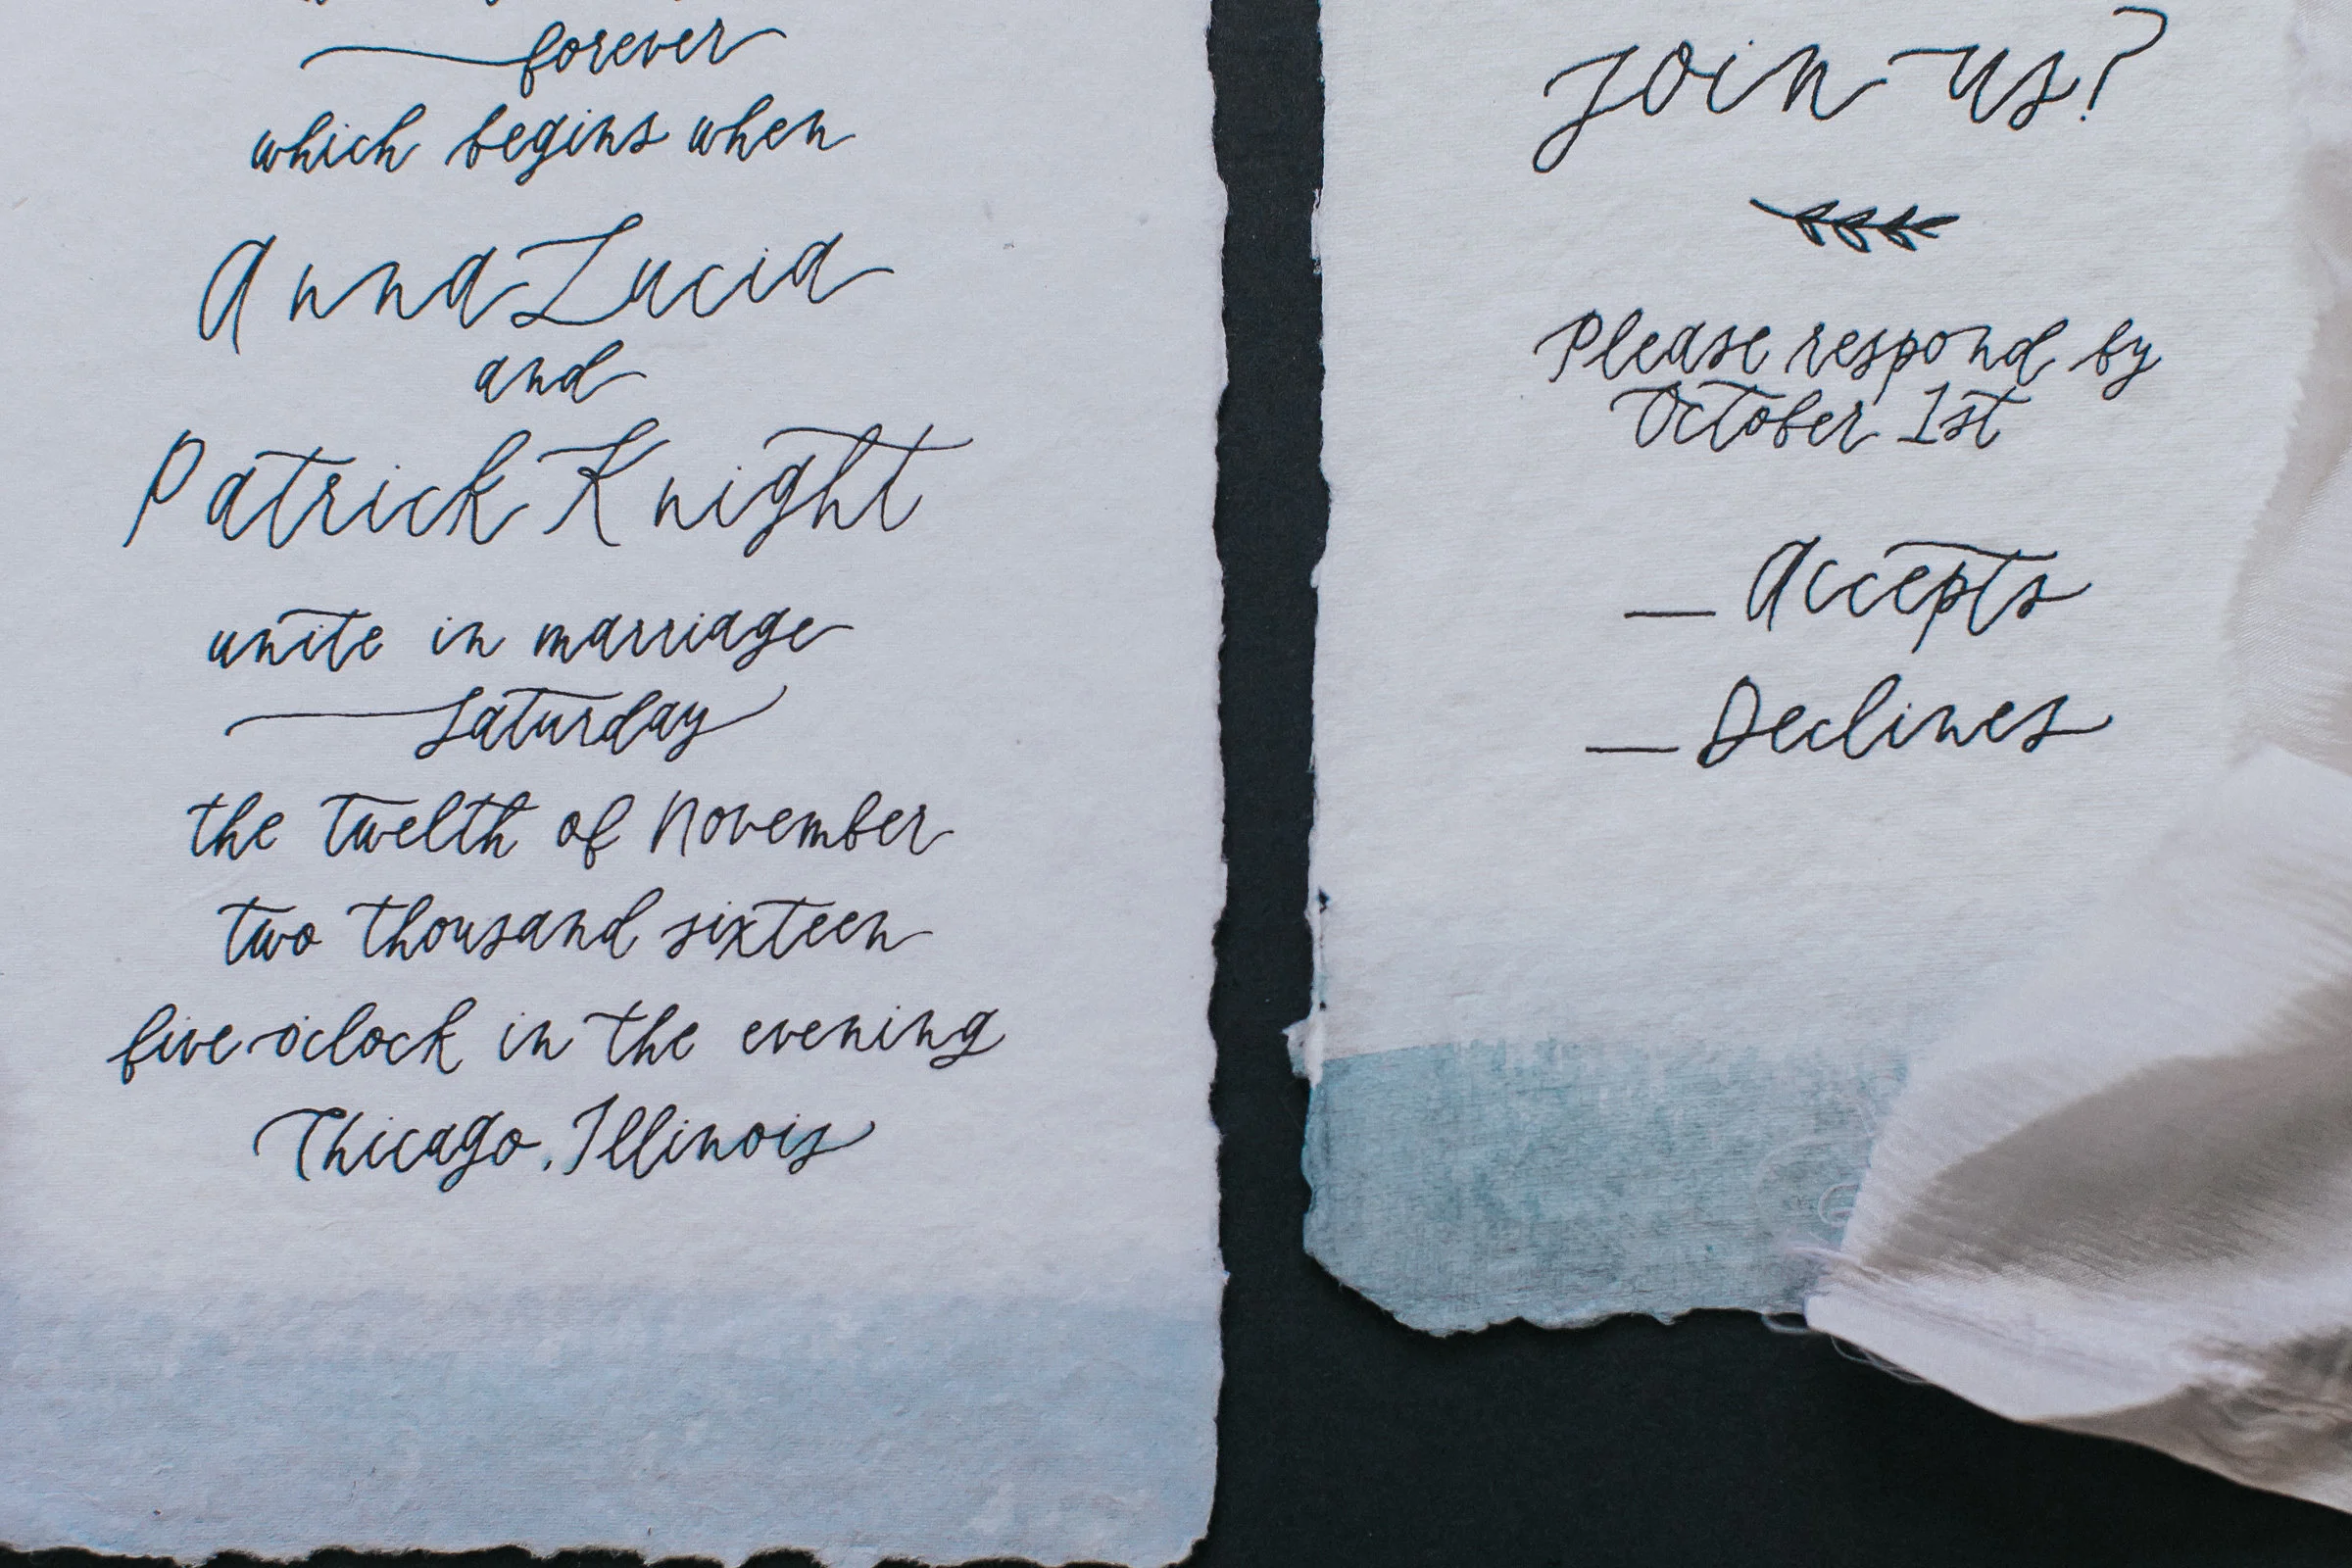 forever
which begins when
Anna Lucia
and
Patrick Knight
unite in marriage
Saturday
the twelth of November
two thousand sixteen
five o'clock in the evening
Chicago, Illinois
Join us?
Please respond by
October 1st
_ Accepts
_ Declines